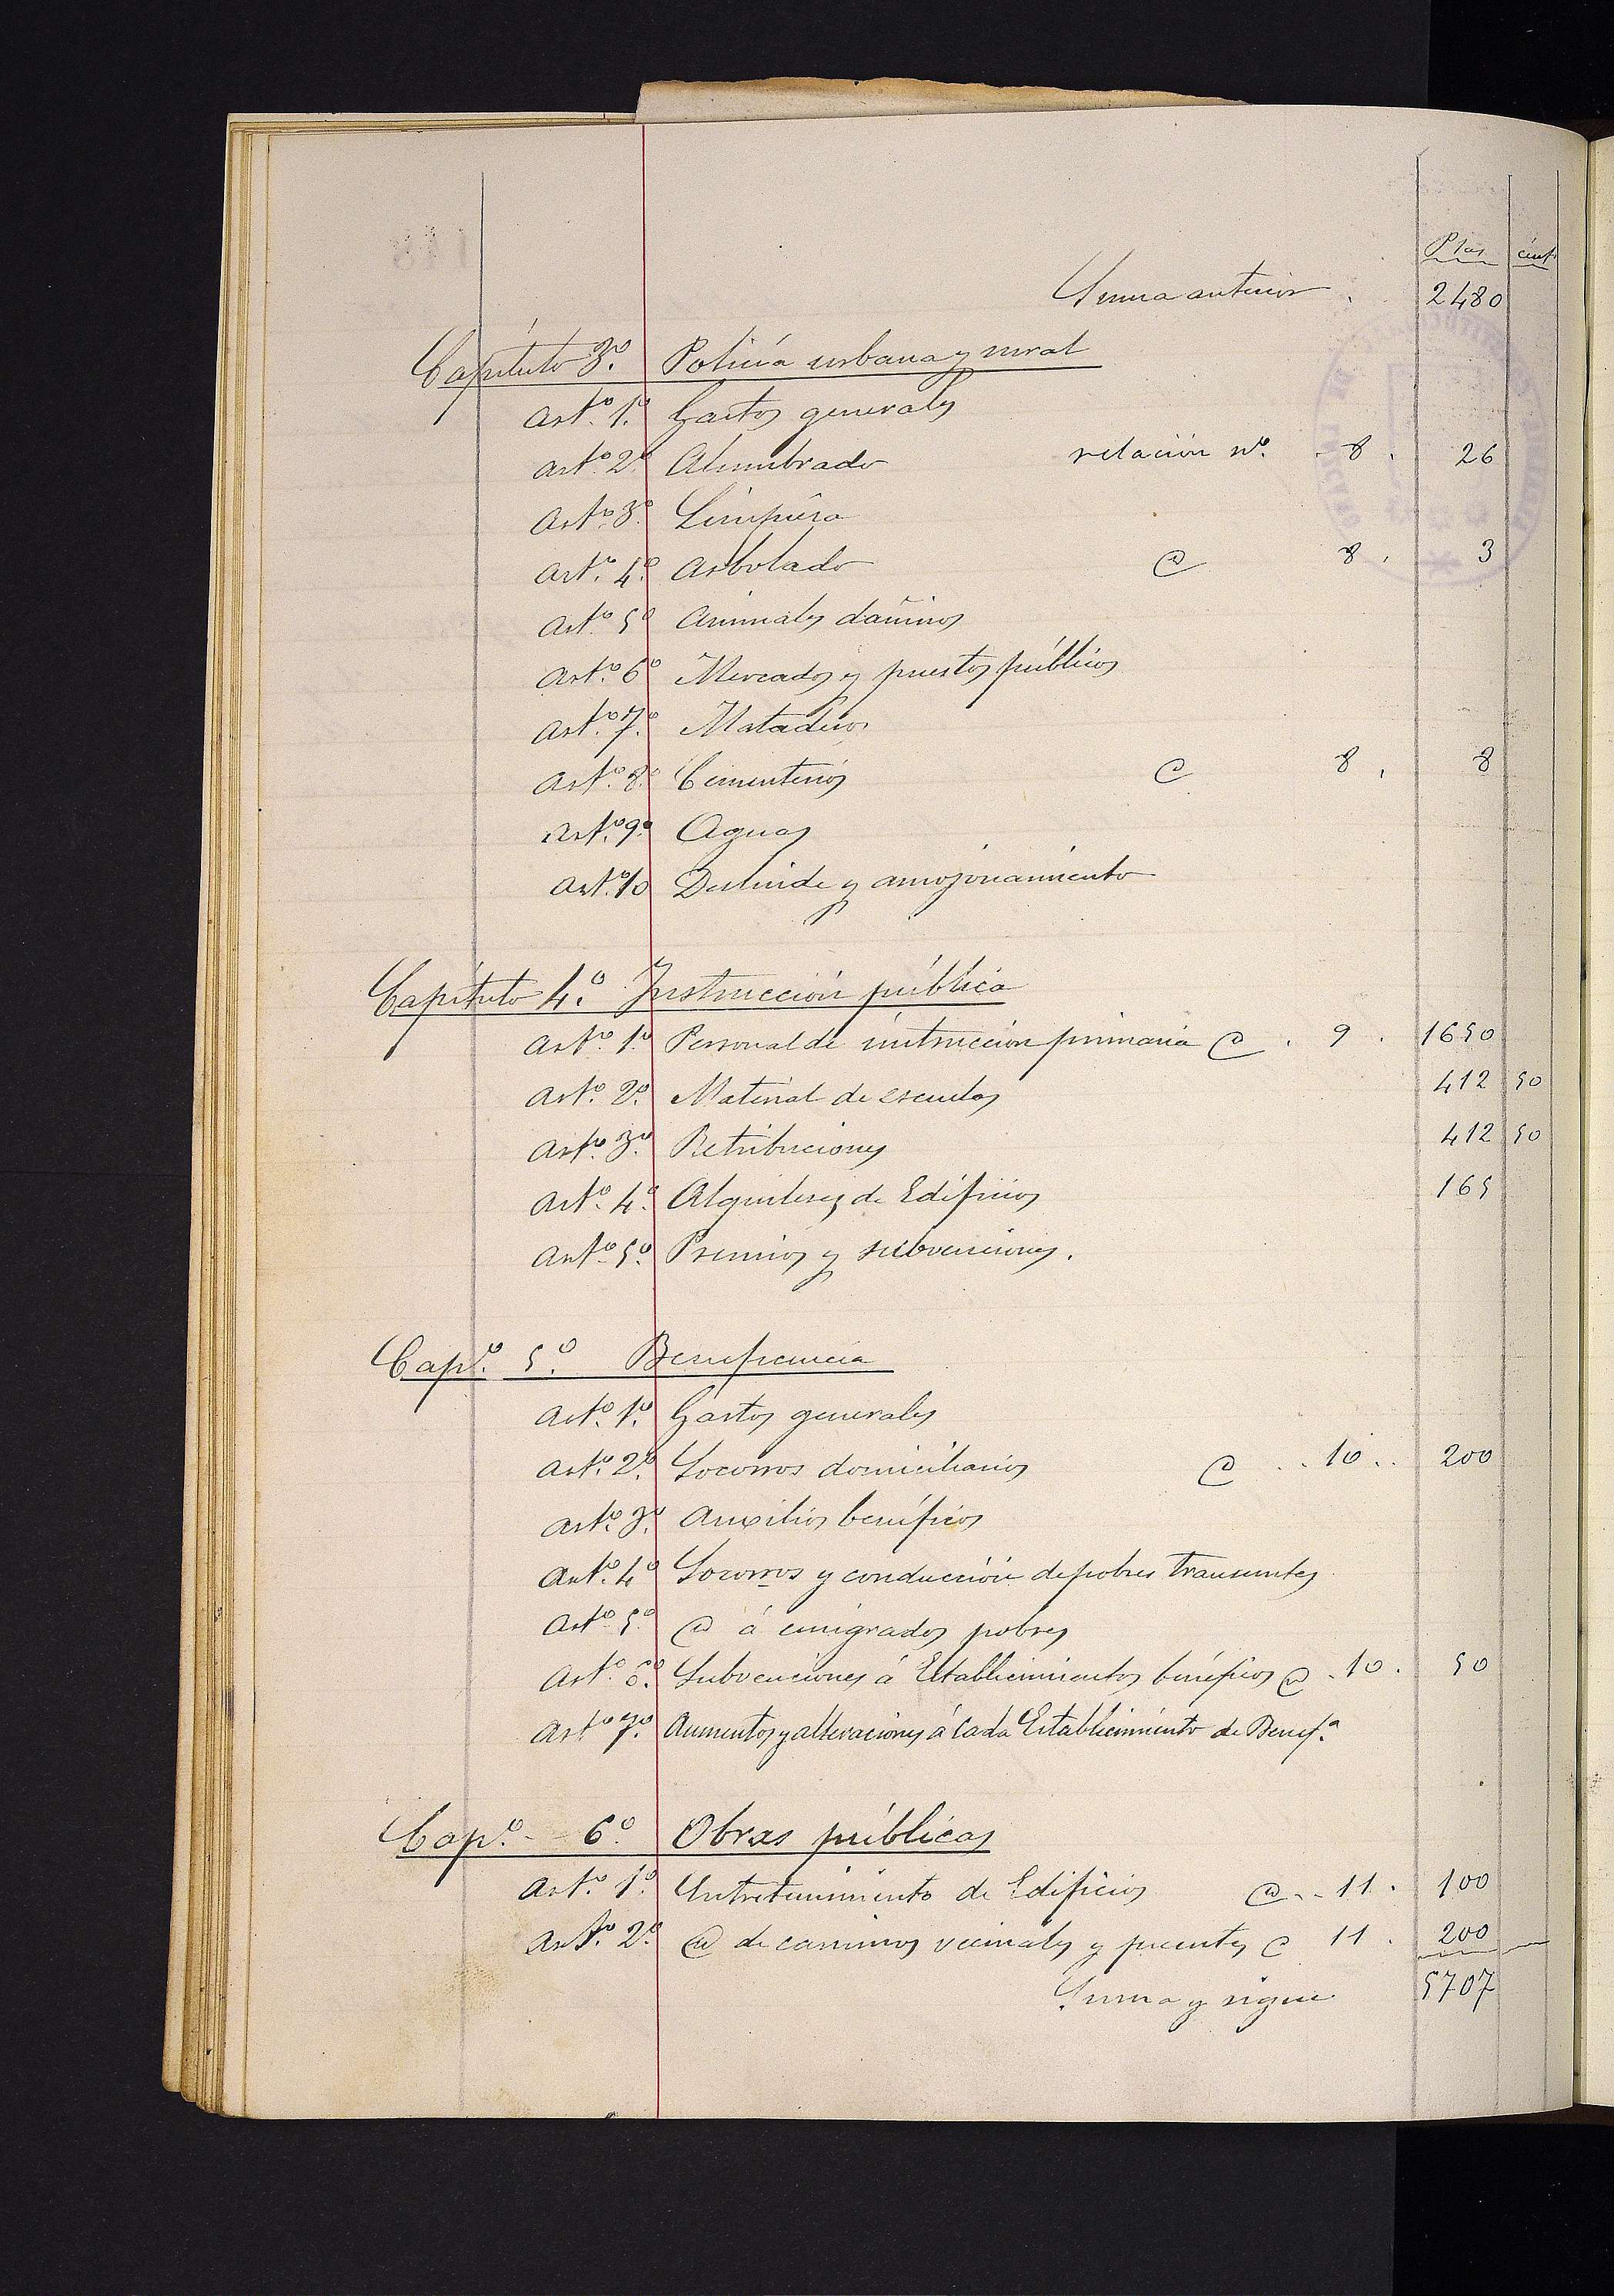 Ptas cents
Suma anterior . 2480
Capítulo 3.º Policía urbana y rural
Art.º 1.º Gastos generales
Art.º 2.º Alumbrado relación n.º 8 . 26
Art.º 3.º Limpieza
Art.º 4.º Arbolado @ 8 . 3
Art.º 5.º Animales dañinos
Art.º 6.º Mercados y puestos públicos
Art.º 7.º Mataderos
Art.º 8.º Cementerios @ 8 . 8
Art.º 9.º Aguas
Art.º 10 Deslinde y amojonamiento
Capítulo 4.º Instrucción pública
Art.º 1.º Personal de instrucción primaria @ . 9 . 1650
Art.º 2.º Material de escuelas 412 50
Art.º 3.º Retribuciones 412 50
Art.º 4.º Alquileres de Edificios 165
Art.º 5.º Premios y subvenciones.
Cap.º 5.º Beneficencia
Art.º 1.º Gastos generales
Art.º 2.º Socorros domiciliarios @ .. 10 .. 200
Art.º 3.º Auxilios benéficos
Art.º 4.º Socorros y conducción de pobres transeuntes
Art.º 5.º @ á emigrados pobres
Art.º 6.º Subvenciones á Establecimientos benéficos @ . 10 . 50
Art.º 7.º Aumentos y alteraciones á cada Establecimiento de Benef.ª
Cap.º 6.º Obras públicas
Art.º 1.º Entretenimiento de Edificios @ .. 11 . 100
Art.º 2.º @ de caminos vecinales y puentes @ 11 . 200
Suma y sigue 5707